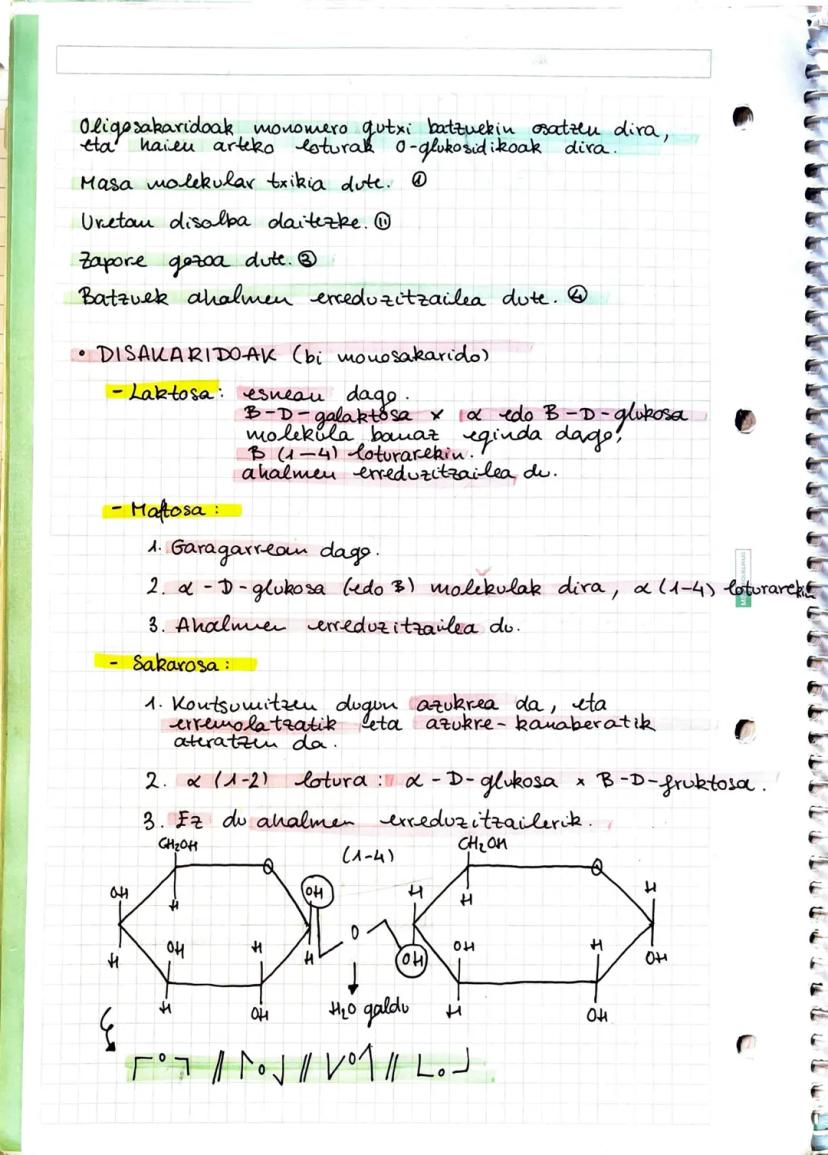 Oligosakaridoak monomero gutxi batzuekin osatzen dira,
eta haien arteko loturak O-glukosidikoak dira.
Masa molekular txikia dute. ①
Uretan disolba daitezke. ⑪
Zapore gozoa dute. ③
Batzuek ahalmen erreduzitzailea dute. ④
• DISAKARIDOAK (bi monosakarido)
- Laktosa: esnean dago.
B-D-galaktosa x α edo B-D-glukosa
molekula banaz eginda dago,
B (1-4) loturarekin.
ahalmen erreduzitzailea du.
- Maltosa:
1. Garagarrean dago.
2. α-D-glukosa (edo B) molekulak dira, α (1-4) loturarekin
3. Ahalmen erreduzitzailea du.
- Sakarosa:
1. Kontsumitzen dugun azukrea da, eta
erremolatzatik eta azukre-kanaberatik
ateratzen da.
2. α (1-2) lotura: α-D-glukosa x B-D-fruktosa.
3. Ez du ahalmen erreduzitzailerik.
CH₂OH (1-4) CH₂OH
O O
OH OH H H
H H
OH H O OH H
H H OH OH
H OH H₂O galdu H OH
O // O // O // O